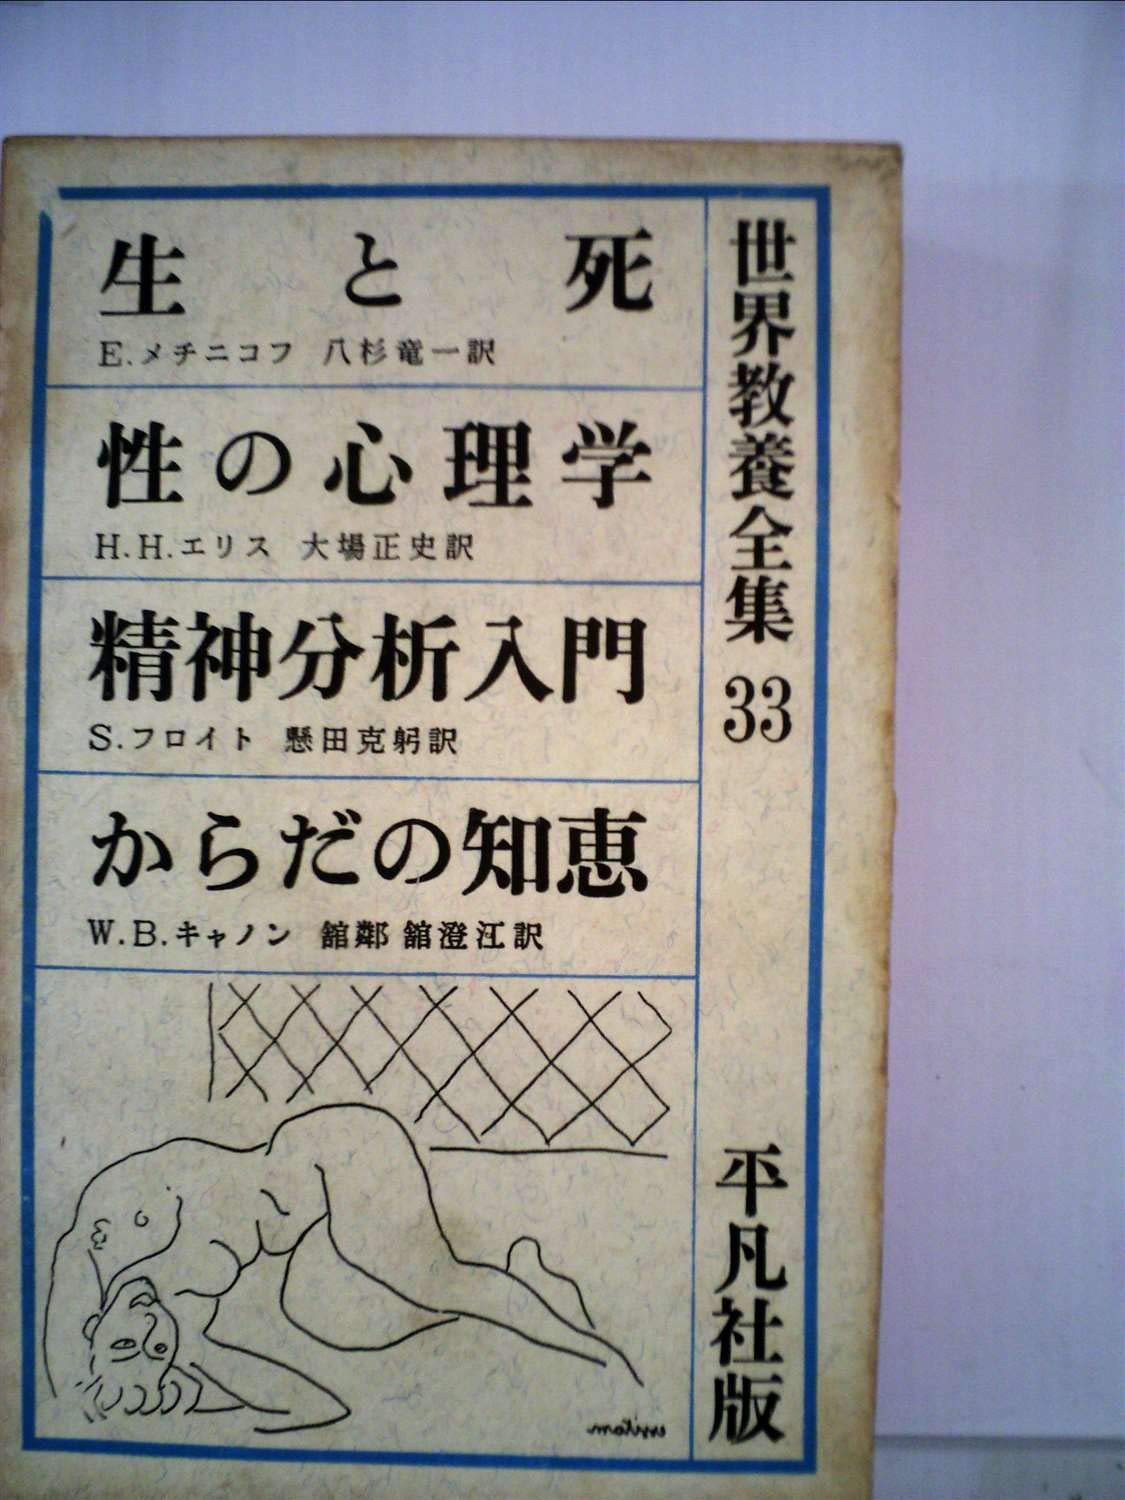 世界教養全集 33
平凡社版
生と死
E.メチニコフ 八杉竜一訳
性の心理学
H.H.エリス 大場正史訳
精神分析入門
S.フロイト 懸田克躬訳
からだの知恵
W.B.キャノン 舘鄰 舘澄江訳